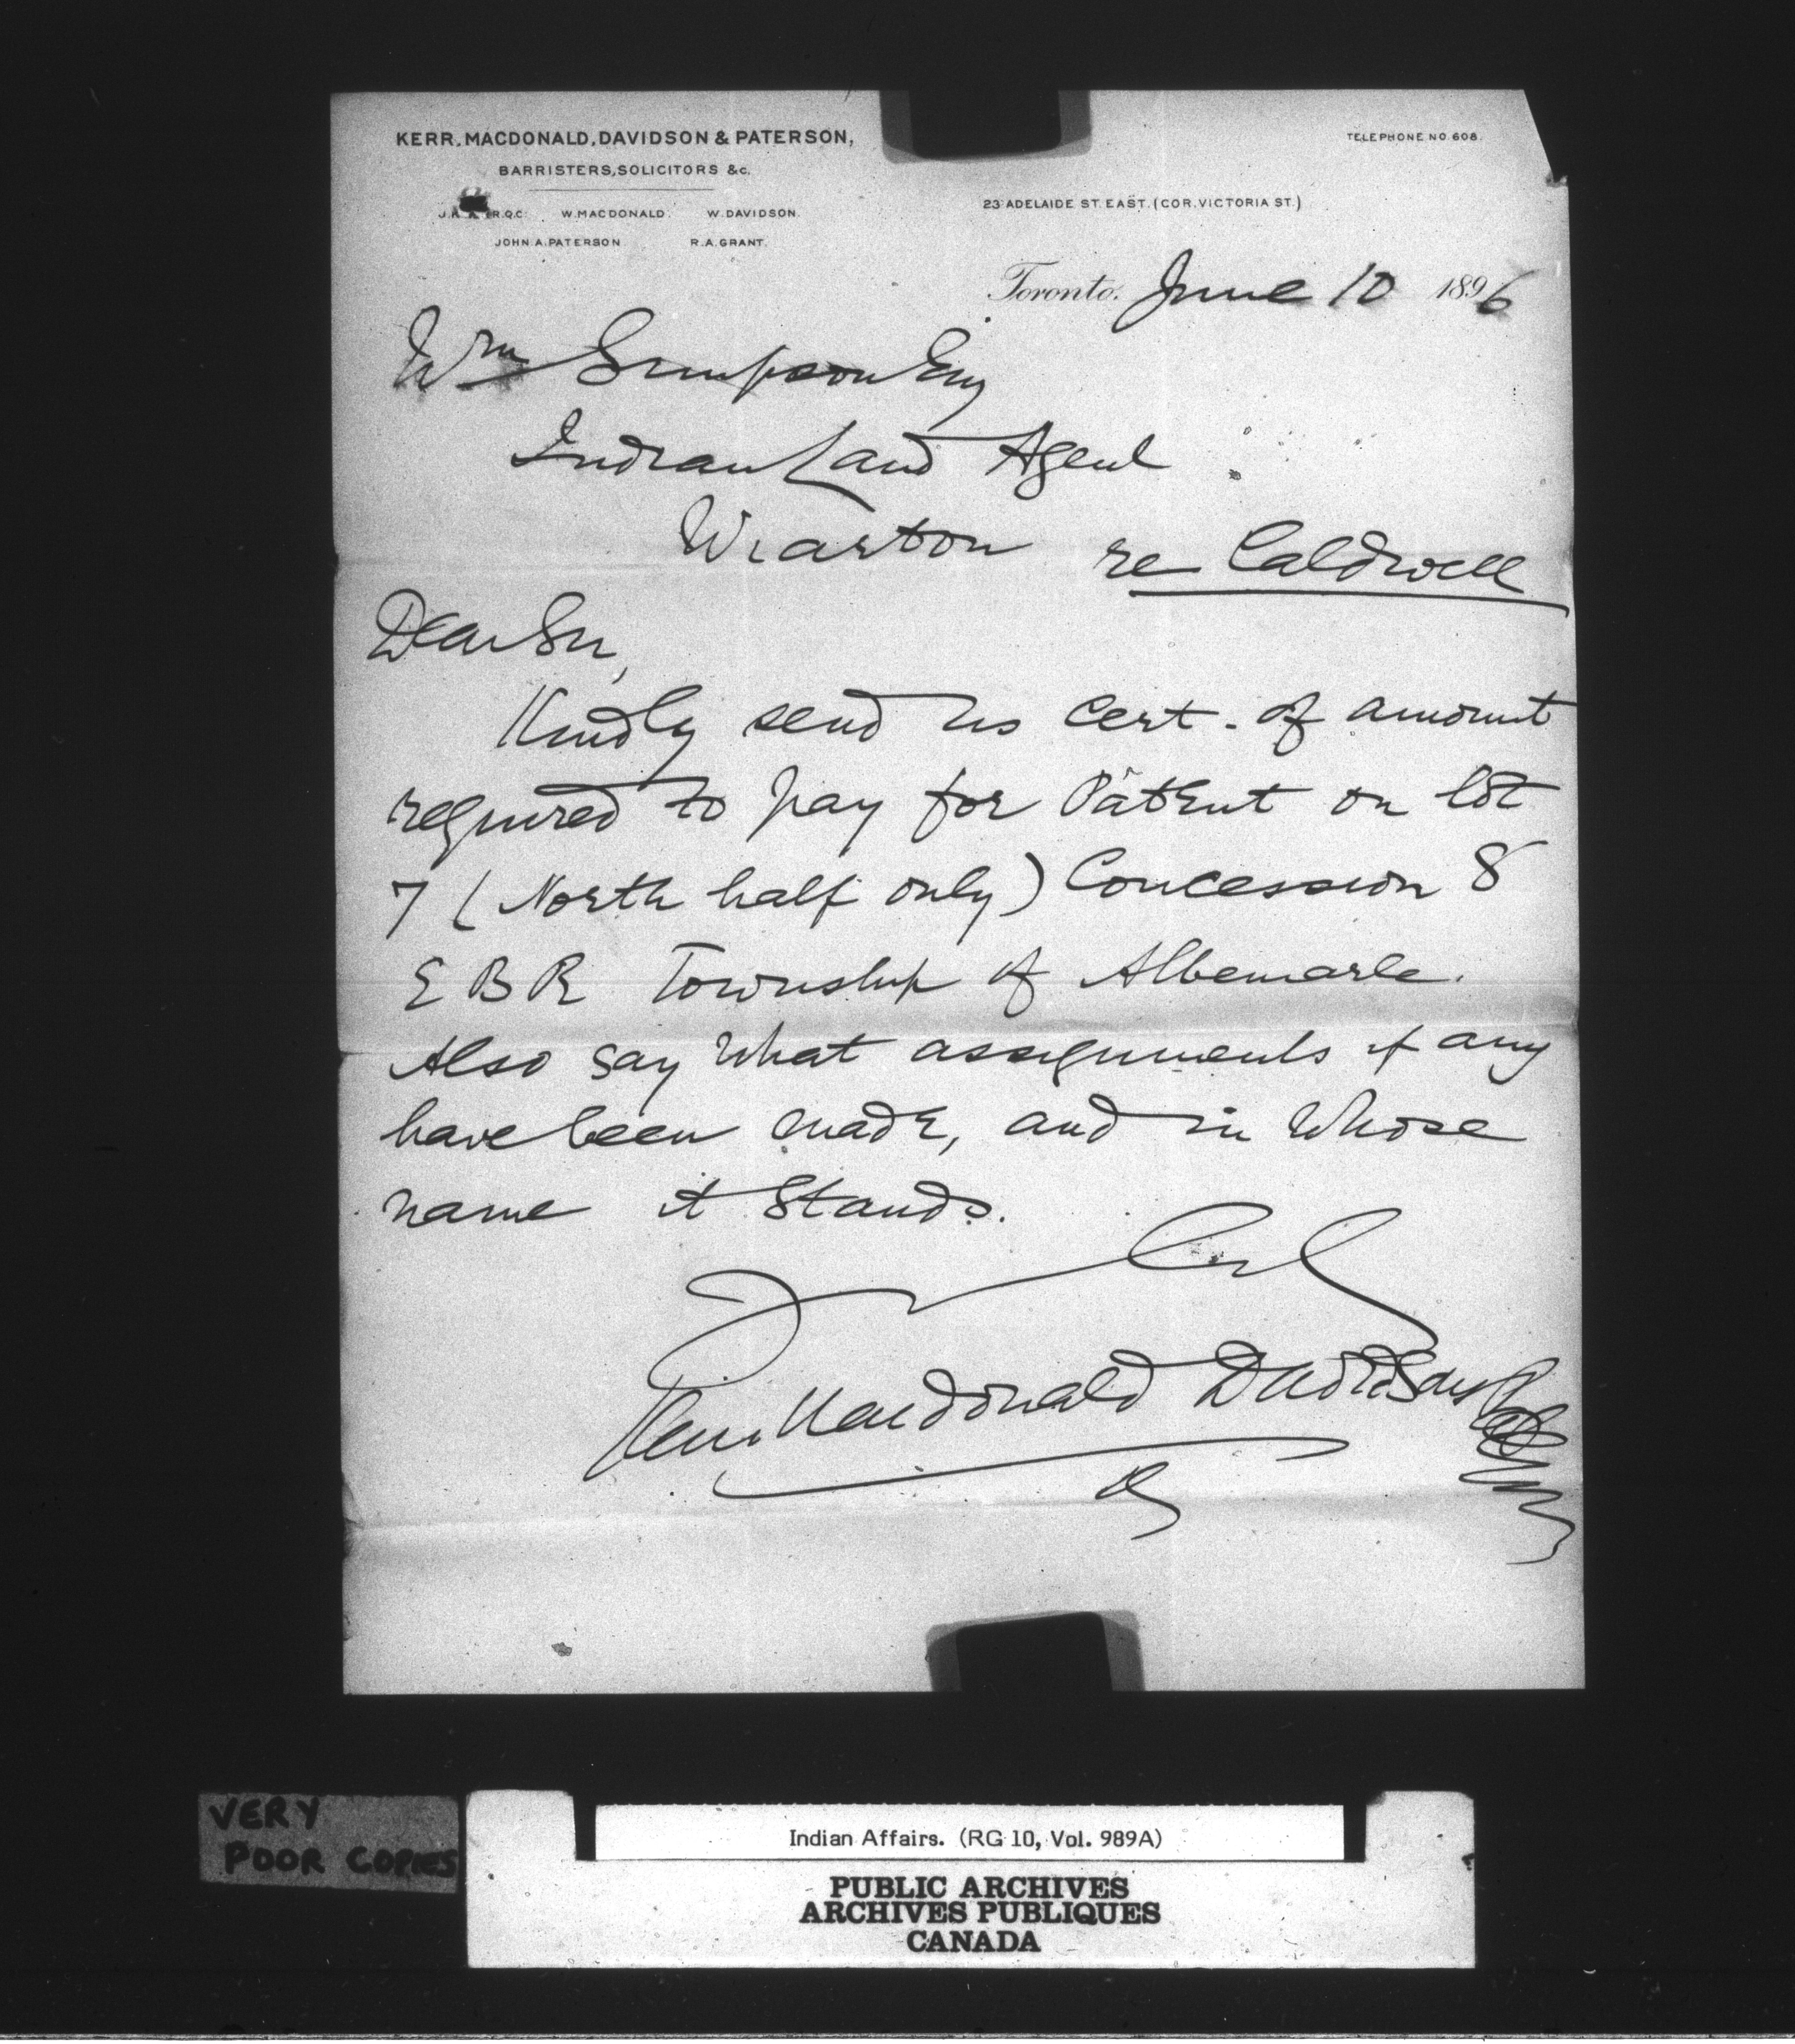 KERR, MACDONALD, DAVIDSON & PATERSON,
BARRISTERS, SOLICITORS &c.
TELEPHONE NO. 608.
W. MACDONALD. W. DAVIDSON.
JOHN A. PATERSON R. A. GRANT.
23 ADELAIDE ST. EAST. (COR. VICTORIA ST.)
Toronto. June 10 1896
Wm Simpson Esq
Indian Land Agent
Wiarton
re Caldwell
Dear Sir,
Kindly send us Cert. of amount
required to pay for Patent on lot
7 (North half only) Concession 8
E B R Township of Albemarle.
Also say what assignments if any
have been made, and in whose
name it stands.
Kerr, Macdonald Davidson & P
VERY
POOR COPIES
Indian Affairs. (RG 10, Vol. 989A)
PUBLIC ARCHIVES
ARCHIVES PUBLIQUES
CANADA